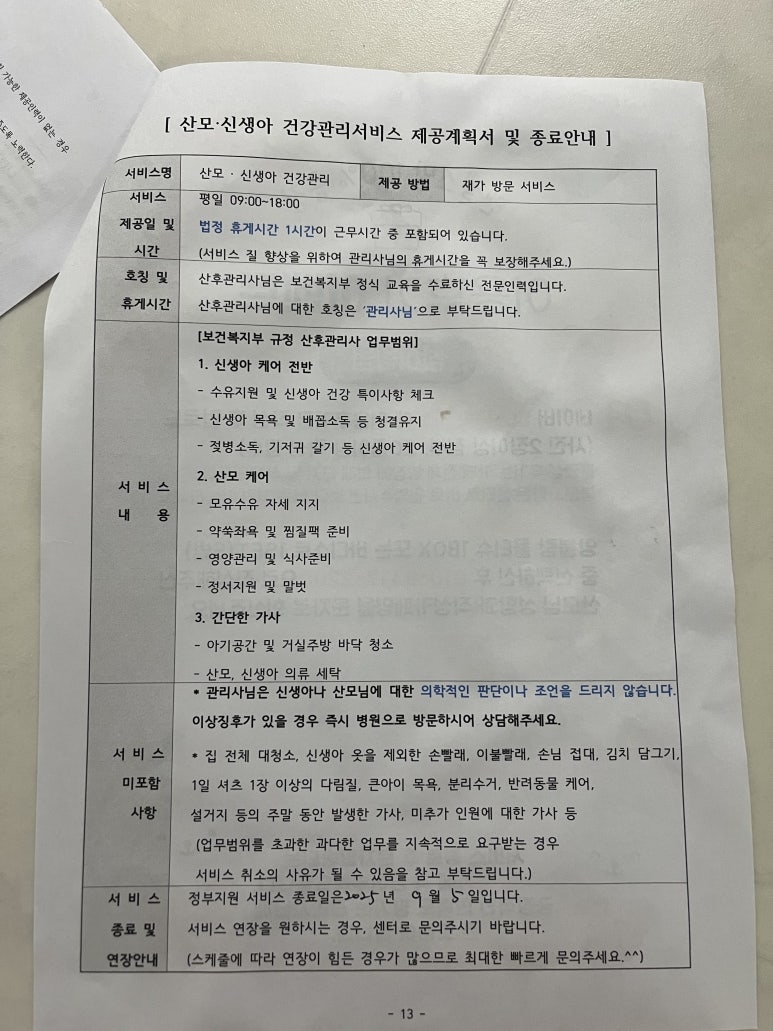 가능한 제공인력이 없는 경우
노력한다.
[ 산모·신생아 건강관리서비스 제공계획서 및 종료안내 ]
서비스명 산모 · 신생아 건강관리 제공 방법 재가 방문 서비스
서비스 제공일 및 시간
평일 09:00~18:00
법정 휴게시간 1시간이 근무시간 중 포함되어 있습니다.
(서비스 질 향상을 위하여 관리사님의 휴게시간을 꼭 보장해주세요.)
호칭 및 휴게시간
산후관리사님은 보건복지부 정식 교육을 수료하신 전문인력입니다.
산후관리사님에 대한 호칭은 '관리사님'으로 부탁드립니다.
서 비 스 내 용
[보건복지부 규정 산후관리사 업무범위]
1. 신생아 케어 전반
- 수유지원 및 신생아 건강 특이사항 체크
- 신생아 목욕 및 배꼽소독 등 청결유지
- 젖병소독, 기저귀 갈기 등 신생아 케어 전반
2. 산모 케어
- 모유수유 자세 지지
- 약쑥좌욕 및 찜질팩 준비
- 영양관리 및 식사준비
- 정서지원 및 말벗
3. 간단한 가사
- 아기공간 및 거실주방 바닥 청소
- 산모, 신생아 의류 세탁
서 비 스 미포함 사항
* 관리사님은 신생아나 산모님에 대한 의학적인 판단이나 조언을 드리지 않습니다.
이상징후가 있을 경우 즉시 병원으로 방문하시어 상담해주세요.
* 집 전체 대청소, 신생아 옷을 제외한 손빨래, 이불빨래, 손님 접대, 김치 담그기,
1일 셔츠 1장 이상의 다림질, 큰아이 목욕, 분리수거, 반려동물 케어,
설거지 등의 주말 동안 발생한 가사, 미추가 인원에 대한 가사 등
(업무범위를 초과한 과다한 업무를 지속적으로 요구받는 경우
서비스 취소의 사유가 될 수 있음을 참고 부탁드립니다.)
서 비 스 종료 및 연장안내
정부지원 서비스 종료일은 2025 년 9 월 5 일입니다.
서비스 연장을 원하시는 경우, 센터로 문의주시기 바랍니다.
(스케줄에 따라 연장이 힘든 경우가 많으므로 최대한 빠르게 문의주세요.^^)
- 13 -